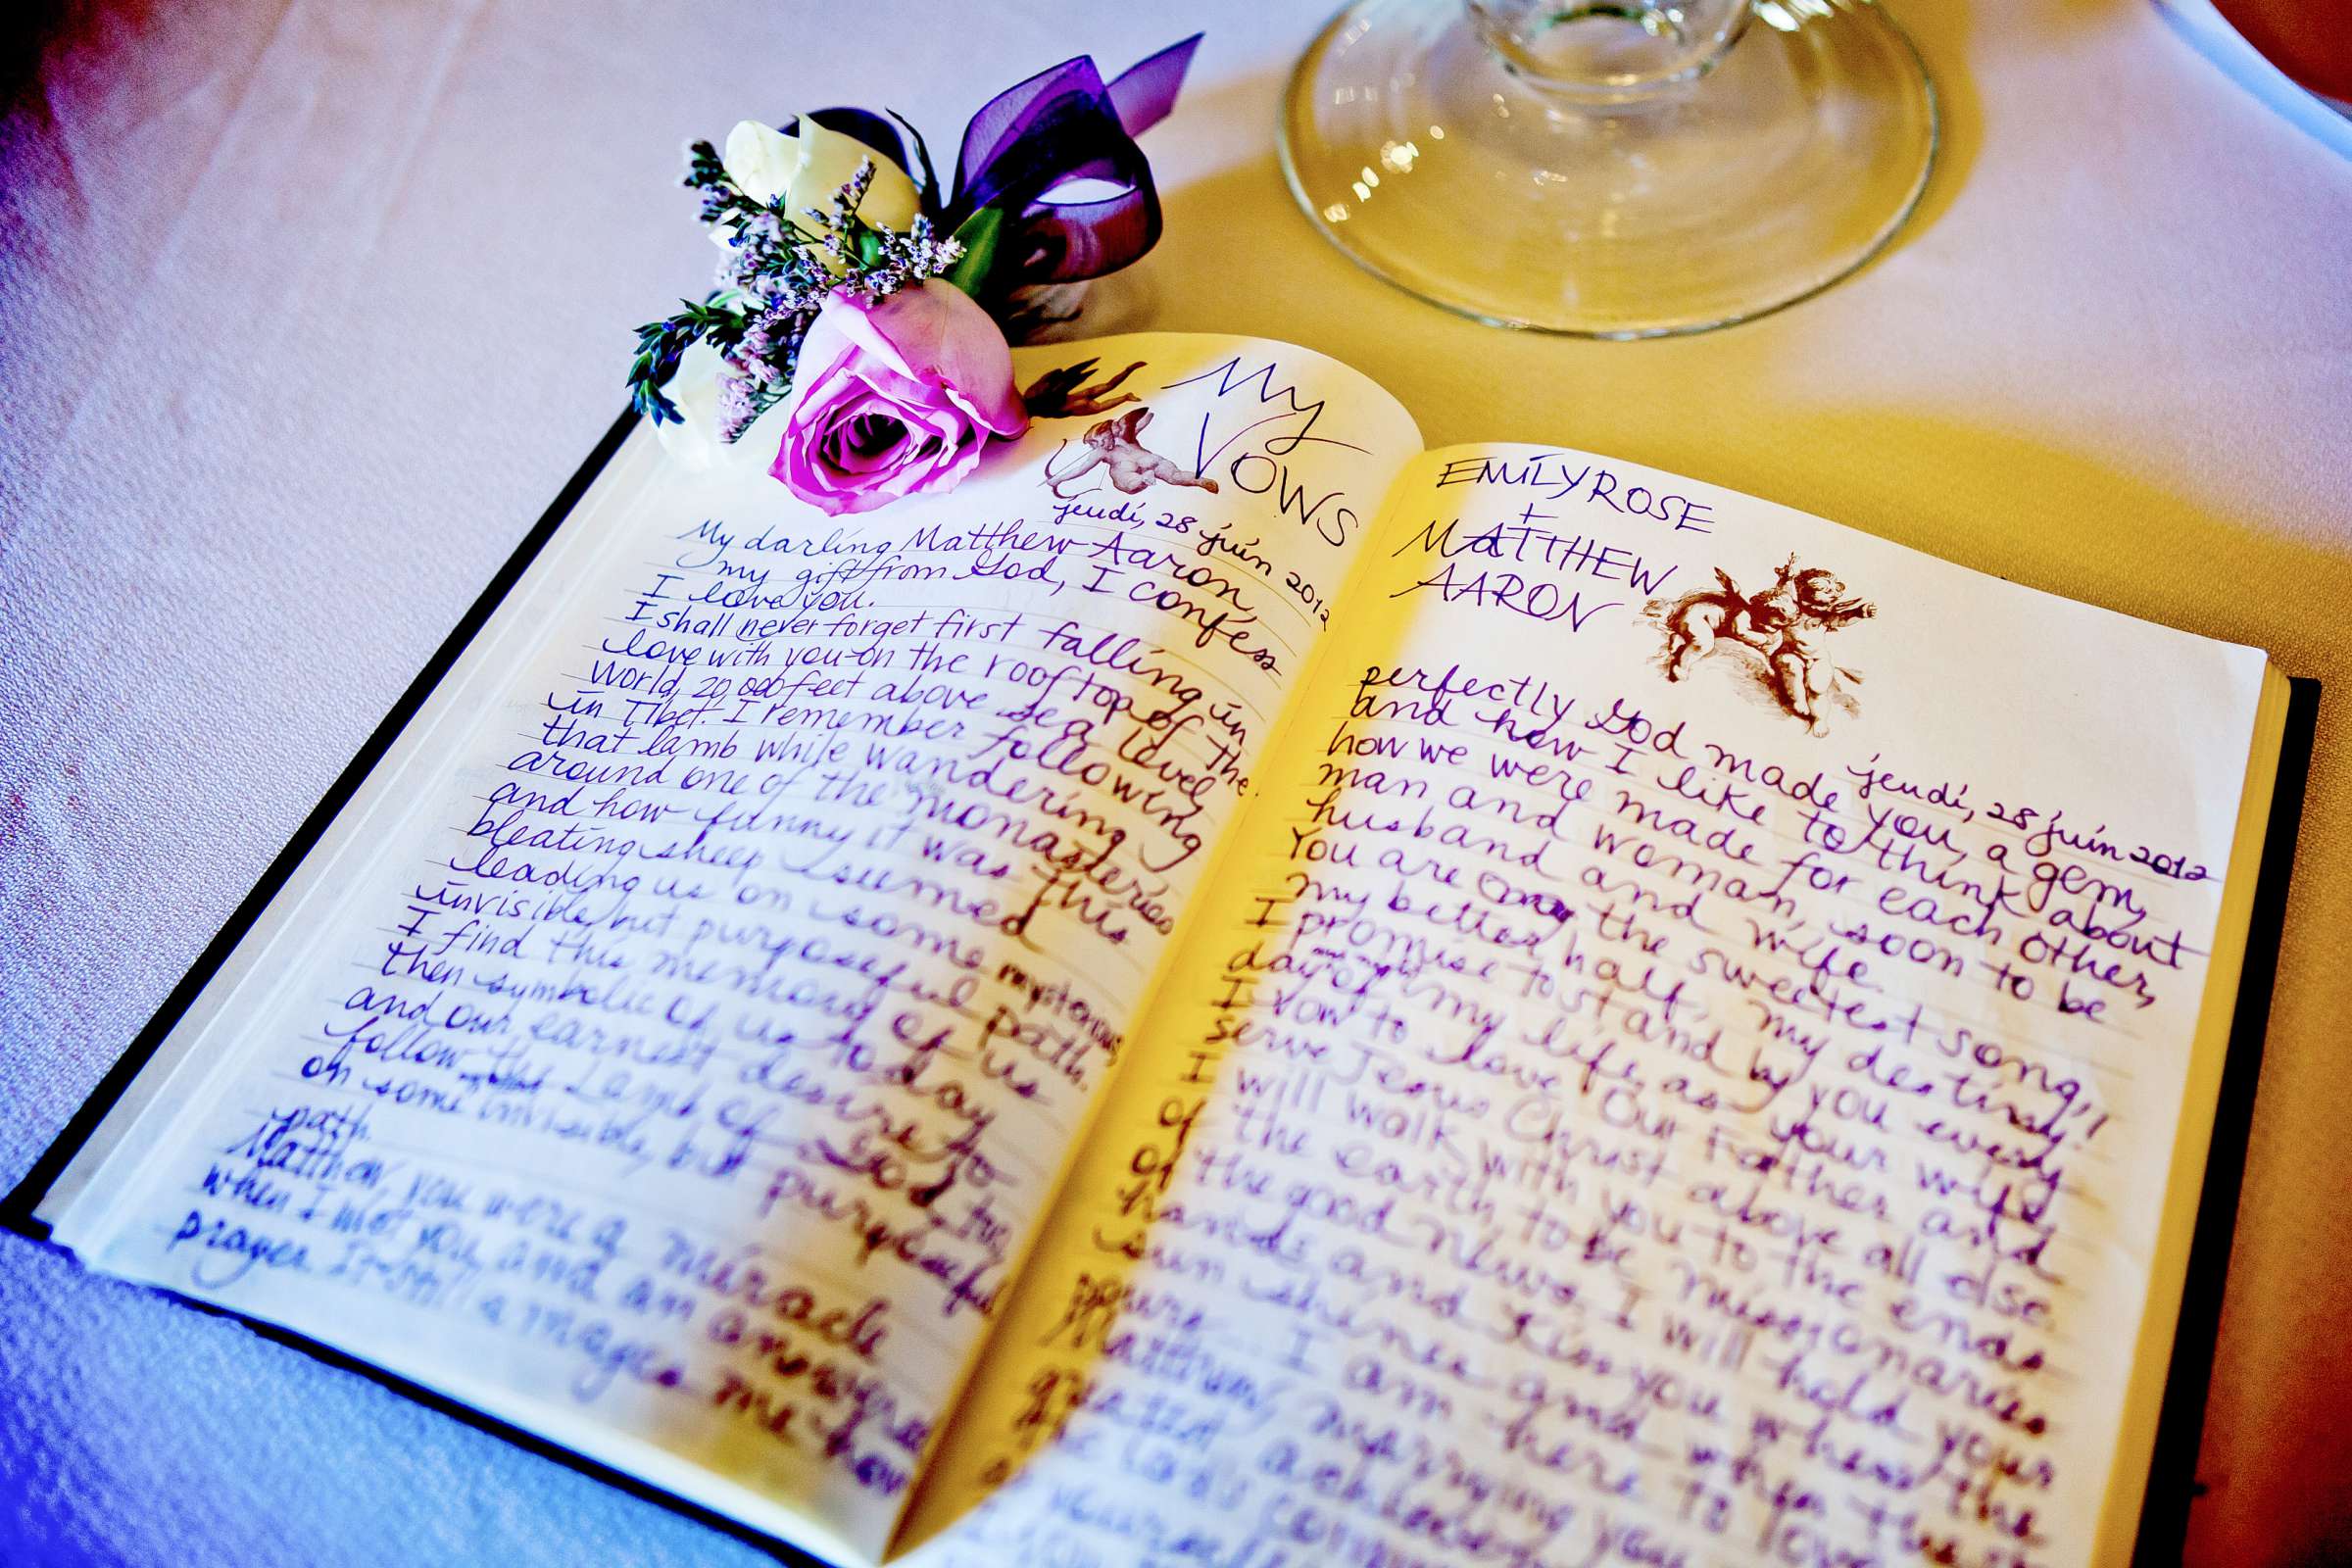 My
Vows
jeudi, 28 juin 2012
My darling Matthew Aaron,
my gift from God, I confess
I love you.
I shall never forget first falling in
love with you on the rooftop of the
world, 20,000 feet above sea level
in Tibet. I remember following
that lamb while wandering
around one of the monasteries
and how funny it was this
bleating sheep seemed
leading us on some mysterious,
invisible, but purposeful path.
I find this memory of us
then symbolic of us today
and our earnest desire to
follow the Lamb of God, too,
on some invisible, but purposeful
path.
Matthew, you were a miracle
when I met you, and an answered
prayer. It still amazes me how
EMILY ROSE
+
MATTHEW
AARON
jeudi, 28 juin 2012
perfectly God made you, a gem,
and how I like to think about
how we were made for each other,
man and woman, soon to be
husband and wife.
You are the sweetest song,
my better half, my destiny!
I promise to stand by you every
day of my life, as your wife.
I vow to love Our Father and
serve Jesus Christ above all else.
I will walk with you to the ends
of the earth to be missionaries
of the good news. I will hold your
hands and kiss you when the
sun shines and when the
pours. I am here to love
Matthew, marrying you
greatest